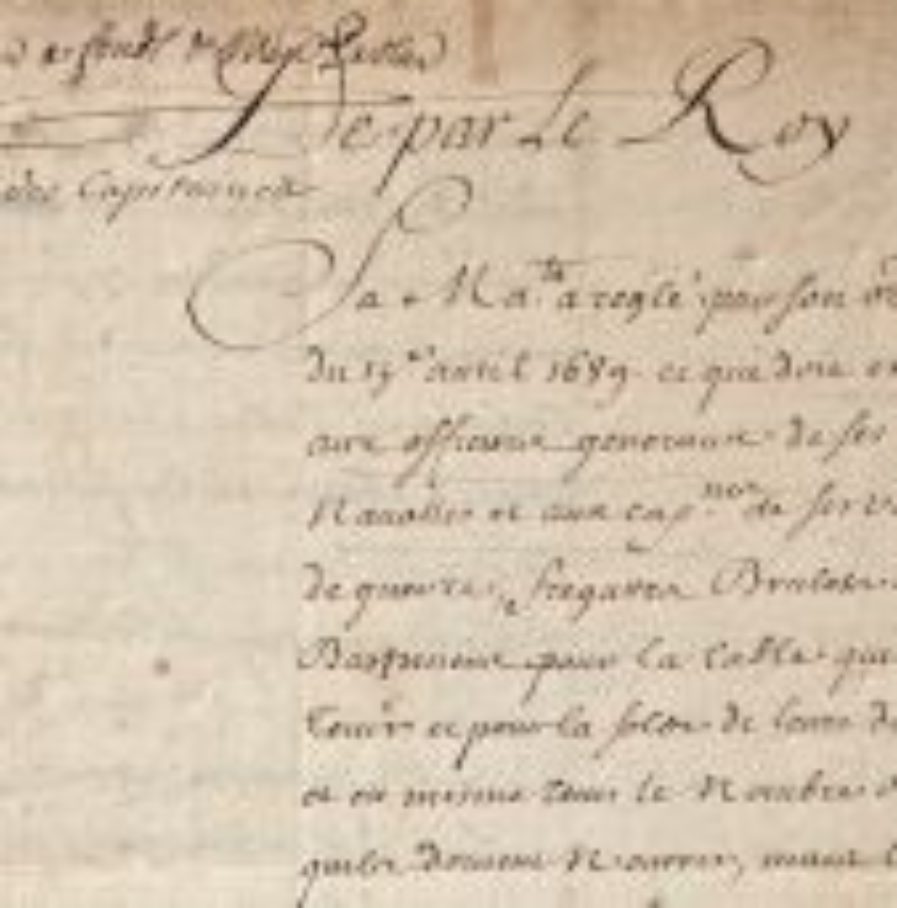 De par Le Roy
des Capitaines
Sa Ma.té a reglé par son
du 15.e avril 1689 ce qui doit
aux officiers generaux de ses
Navalles et aux cap.nes de ses
de guerre, fregattes Brulots
Bastimens pour la table qui
tenir et pour la solde de leurs
et en mesme tems le Nombre
quils doivent Nourrir, mais